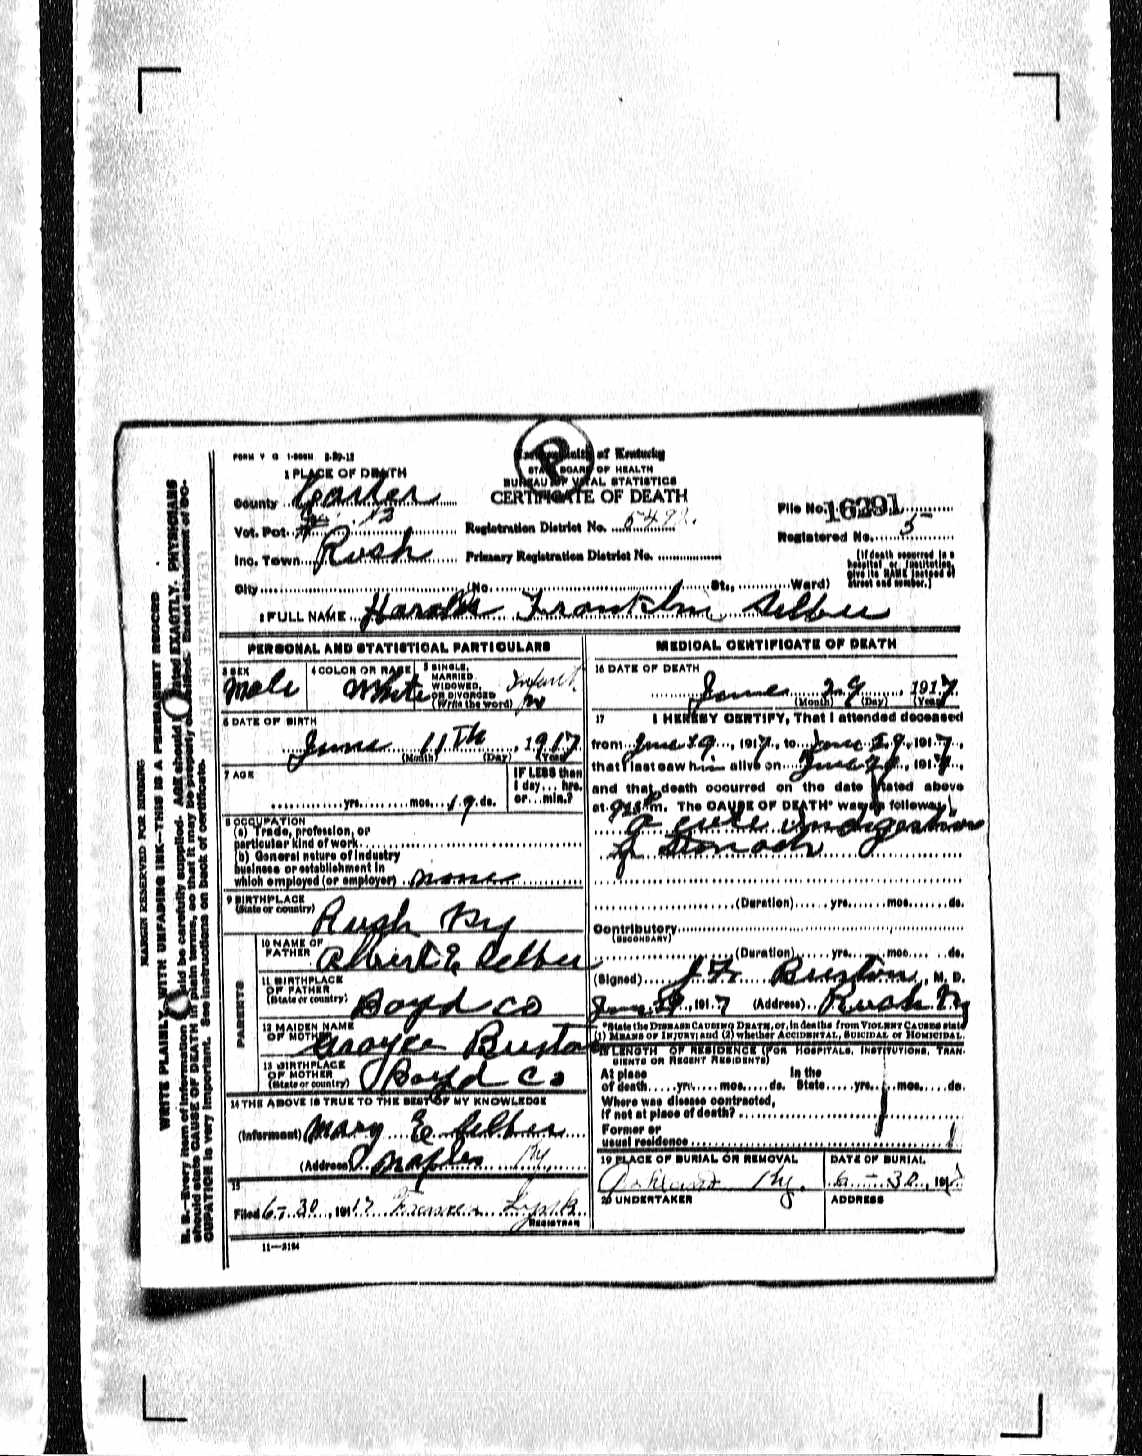 FORM V S 1-500M 2-29-12
Commonwealth of Kentucky
1 PLACE OF DEATH
STATE BOARD OF HEALTH
BUREAU OF VITAL STATISTICS
CERTIFICATE OF DEATH
County Carter
File No. 16291
Vot. Pct. # 12
Registration District No. 549
Registered No. 5
Inc. Town Rush
Primary Registration District No.
(If death occurred in a hospital or institution, give its NAME instead of street and number.)
City (No. St., Ward)
2 FULL NAME Harold Franklin Selbee
PERSONAL AND STATISTICAL PARTICULARS
3 SEX Male
4 COLOR OR RACE White
5 SINGLE, MARRIED, WIDOWED, OR DIVORCED (Write the word) Infant
6 DATE OF BIRTH
June 11th, 1917
(Month) (Day) (Year)
7 AGE
yrs. mos. 19 ds.
IF LESS than 1 day... hrs. or... min.?
8 OCCUPATION
(a) Trade, profession, or
particular kind of work
(b) General nature of industry
business or establishment in
which employed (or employer) none
9 BIRTHPLACE
(State or country) Rush Ky
PARENTS
10 NAME OF FATHER Albert E. Selbee
11 BIRTHPLACE OF FATHER (State or country) Boyd Co
12 MAIDEN NAME OF MOTHER Grayce Burton
13 BIRTHPLACE OF MOTHER (State or country) Boyd Co
14 THE ABOVE IS TRUE TO THE BEST OF MY KNOWLEDGE
(Informant) Mary E Selbee
(Address) Naples Ky
15
Filed 6-30, 1917
REGISTRAR
11-3184
MEDICAL CERTIFICATE OF DEATH
16 DATE OF DEATH
June 29, 1917
(Month) (Day) (Year)
17 I HEREBY CERTIFY, That I attended deceased
from June 29, 1917, to June 29, 1917,
that I last saw him alive on June 29, 1917,
and that death occurred on the date stated above
at m. The CAUSE OF DEATH* was as follows:
acute indigestion
of Stomach
(Duration) yrs. mos. ds.
Contributory
(SECONDARY)
(Duration) yrs. mos. ds.
(Signed) J. F. Burton, M. D.
June 29, 1917 (Address) Rush Ky
*State the DISEASE CAUSING DEATH, or, in deaths from VIOLENT CAUSES state
(1) MEANS OF INJURY; and (2) whether ACCIDENTAL, SUICIDAL or HOMICIDAL.
18 LENGTH OF RESIDENCE (FOR HOSPITALS, INSTITUTIONS, TRANSIENTS OR RECENT RESIDENTS)
At place of death yrs. mos. ds. In the State yrs. mos. ds.
Where was disease contracted,
if not at place of death?
Former or
usual residence
19 PLACE OF BURIAL OR REMOVAL
Ky.
DATE OF BURIAL
6-30, 1917
20 UNDERTAKER
ADDRESS
MARGIN RESERVED FOR BINDING
WRITE PLAINLY WITH UNFADING INK—THIS IS A PERMANENT RECORD
N. B.—Every item of information should be carefully supplied. AGE should be stated EXACTLY. PHYSICIANS
should state CAUSE OF DEATH in plain terms, so that it may be properly classified. Exact statement of OC-
CUPATION is very important. See instructions on back of certificate.